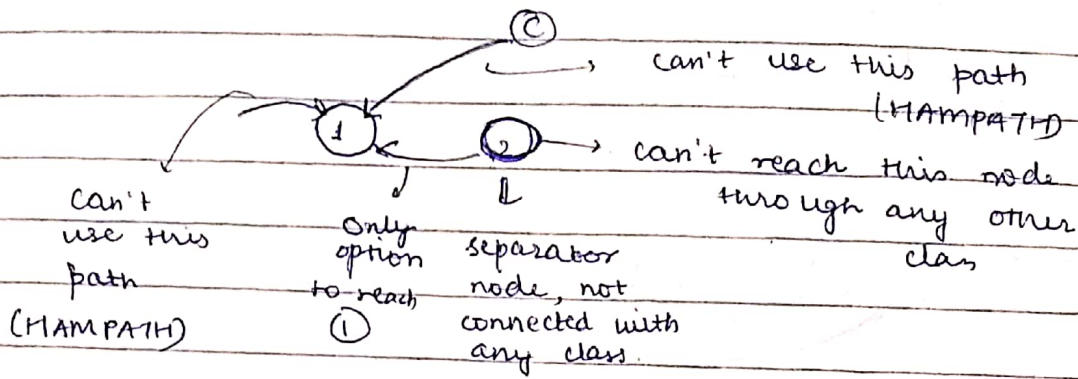 C
can't use this path
(HAMPATH)
1
2
can't reach this node
through any other
clas
can't
use this
path
(HAMPATH)
only
option
to reach
1
separator
node, not
connected with
any class.